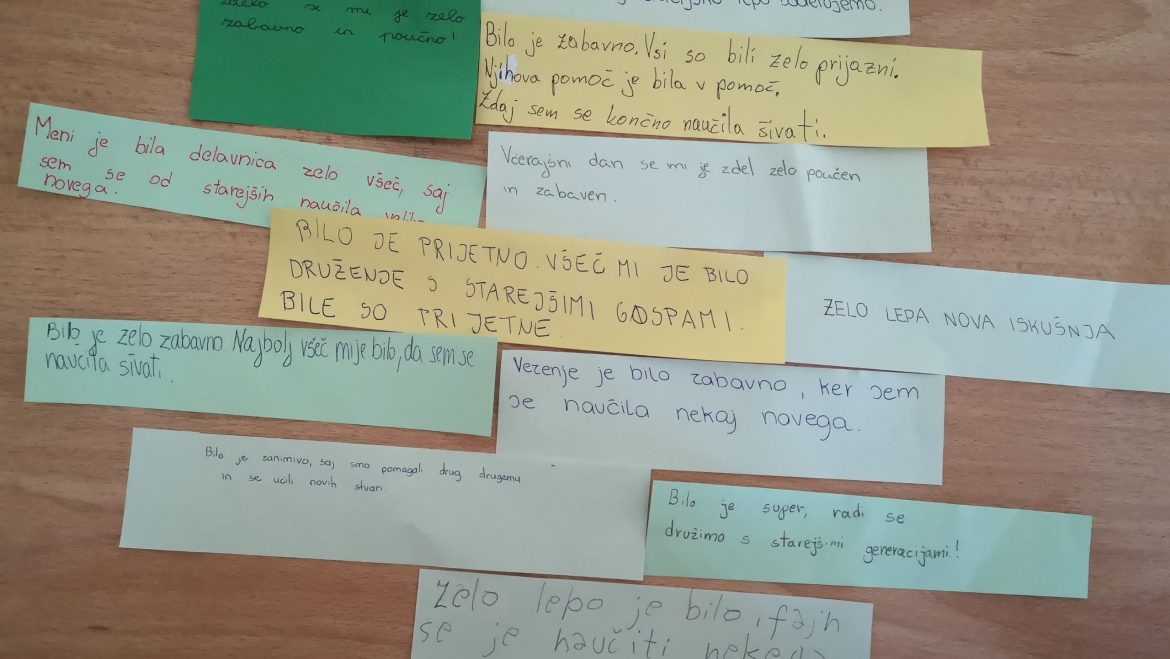 zdelo se mi je zelo
zabavno in poučno!
lepo sodelujemo.
Bilo je zabavno. Vsi so bili zelo prijazni.
Njihova pomoč je bila v pomoč.
Zdaj sem se končno naučila šivati.
Meni je bila delavnica zelo všeč, saj
sem se od starejših naučila
novega.
Včerajšni dan se mi je zdel zelo poučen
in zabaven.
BILO JE PRIJETNO. VŠEČ MI JE BILO
DRUŽENJE S STAREJŠIMI GOSPAMI.
BILE SO PRIJETNE
ZELO LEPA NOVA ISKUŠNJA
Bilo je zelo zabavno. Najbolj všeč mi je bilo, da sem se
naučila šivati.
Vezenje je bilo zabavno, ker sem
se naučila nekaj novega.
Bilo je zanimivo, saj smo pomagali drug drugemu
in se učili novih stvari.
Bilo je super, radi se
družimo s starejšimi generacijami!
Zelo lepo je bilo, fajn
se je naučiti